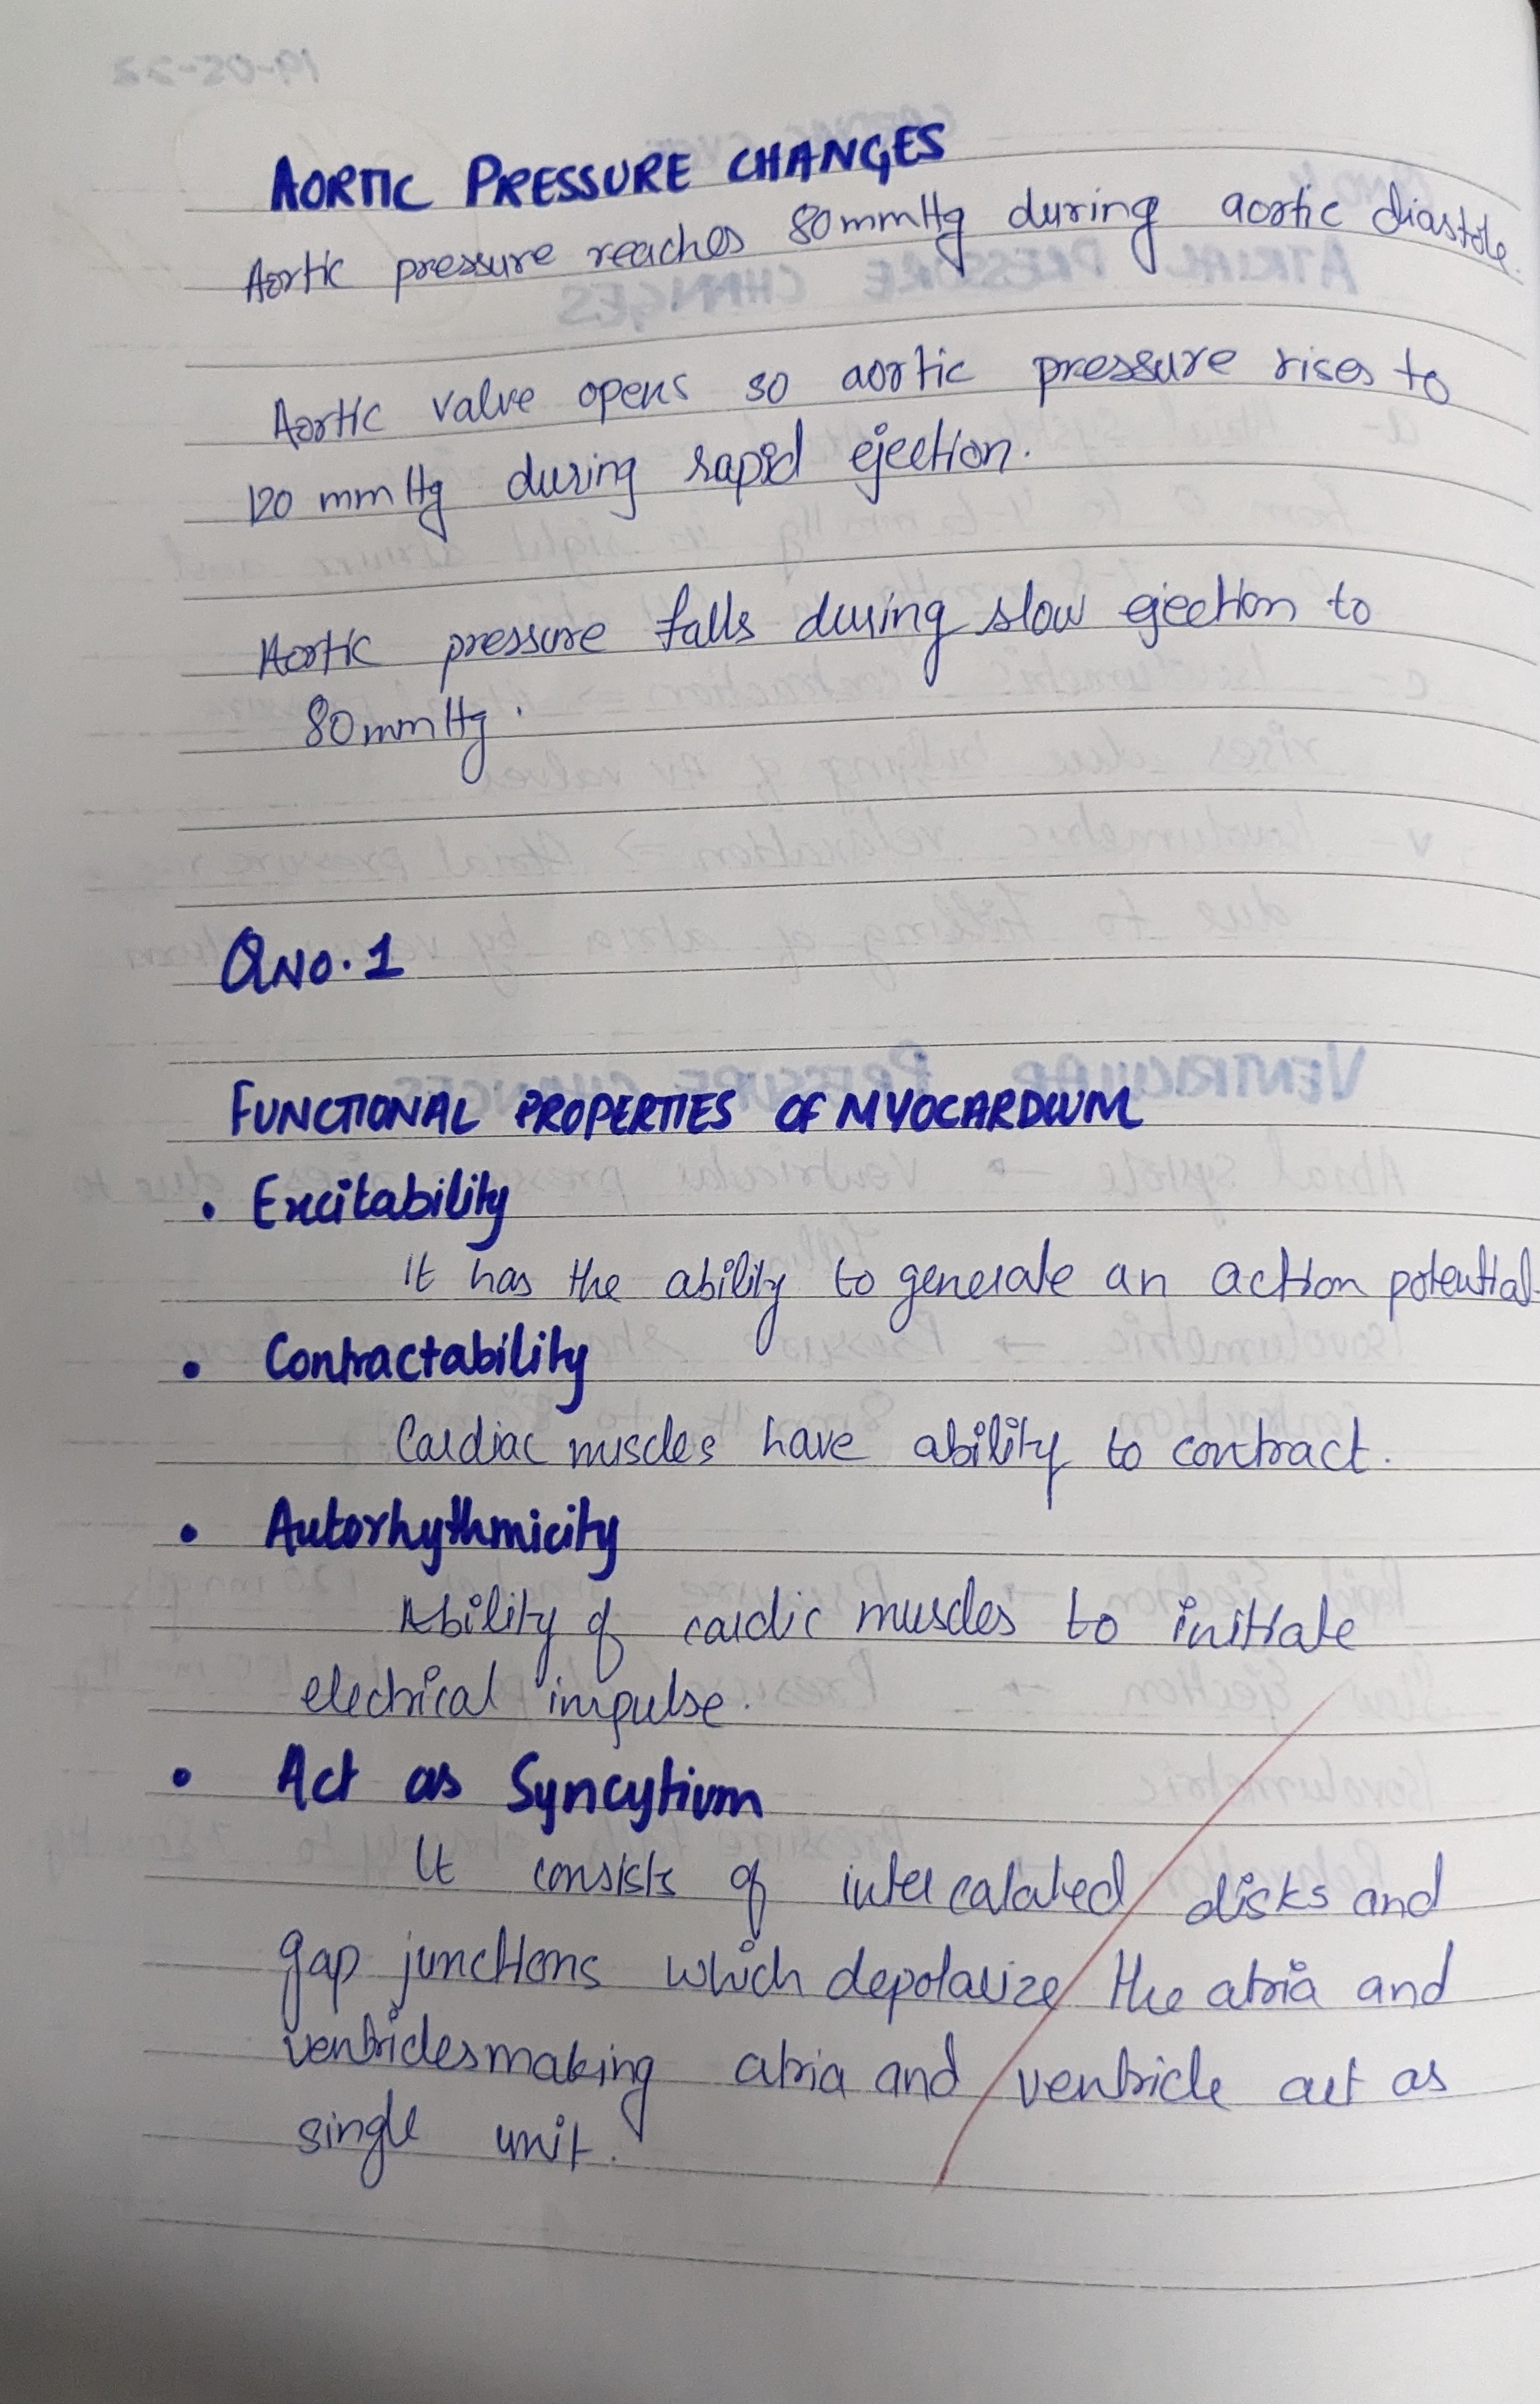 AORTIC PRESSURE CHANGES
Aortic pressure reaches 80mmHg during aortic diastole.
Aortic valve opens so aortic pressure rises to
120 mmHg during rapid ejection.
Aortic pressure falls during slow ejection to
80mmHg.
QNO.1
FUNCTIONAL PROPERTIES OF MYOCARDIUM
• Excitability
It has the ability to generate an action potential.
• Contractability
Cardiac muscles have ability to contract.
• Autorhythmicity
Ability of cardic muscles to initiate
electrical impulse.
• Act as Syncytium
It consists of intercalated disks and
gap junctions which depolarize the atria and
ventricles making atria and ventricle act as
single unit.